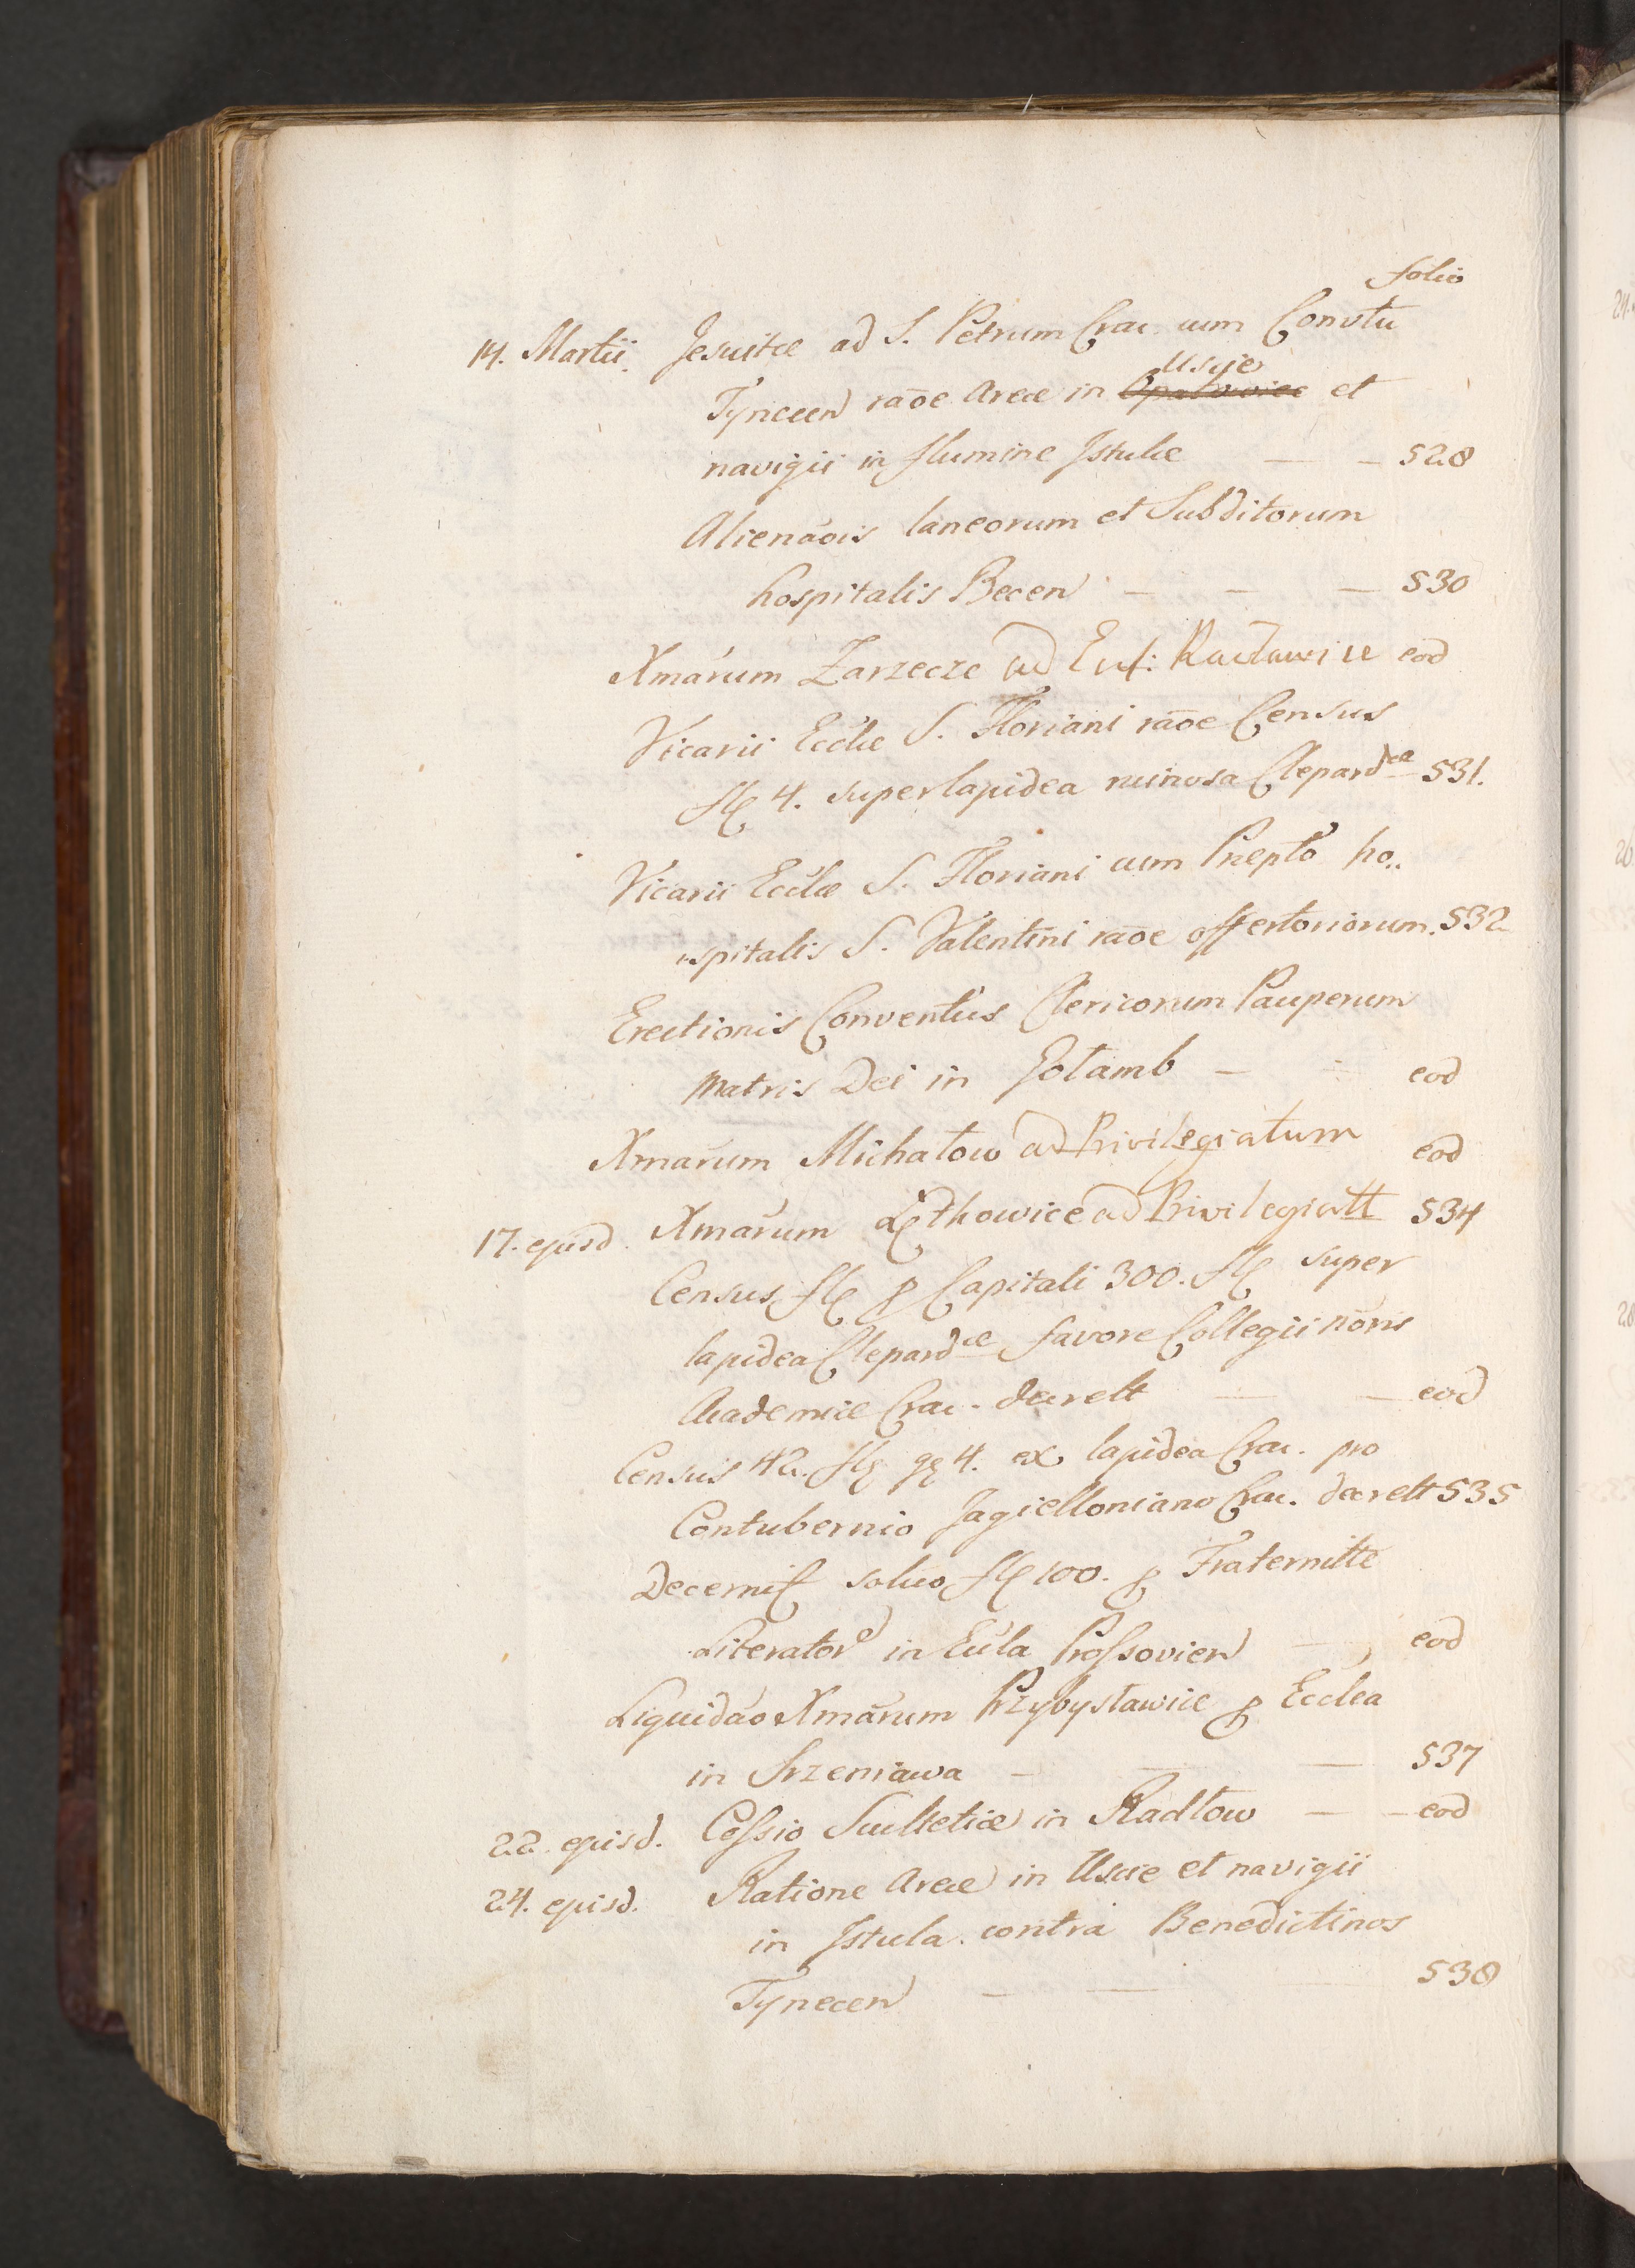 folio
14. Martii. Jesuitæ ad S. Petrum Crac. cum Convtu
Usćie
Tynecen raõe Areæ in Opatowiec et
navigii in flumine Istulæ — — 528
Alienaõis laneorum et Subditorum
hospitalis Becen — — — 530
Xmarum Zarzecze ad Ecl: Racławice eod
Vicarii Ecclæ S. Floriani raõe Census
fl 4. super lapidea ruinosa Clepardæ 531.
Vicarii Ecclæ S. Floriani cum Præpto ho„
„spitalis S. Valentini raõe offertoriorum. 532
Erectionis Conventus Clericorum Pauperum
Matris Dei in Golamb — eod
Xmarum Michałow ad Privilegiatum eod
17. ejusd. Xmarum Lethowice ad Privilegiatt 534
Census fl p Capitali 300. fl super
lapidea Clepardæ favore Collegii noris
Academiæ Crac. decrett — — eod
Census 42. fl gr 4. ex lapidea Crac. pro
Contubernio Jagielloniano Crac. decrett 535
Decernit solvo fl 100. p Fraternitte
Literator in Eccla Prossovien — eod
Liquidão Xmarum Przybysławice p Ecclea
in Srzeniawa — — — 537
22. ejusd. Cessio Scultetiæ in Radłow — — eod
24. ejusd. Ratione Areæ in Uscie et navigii
in Istula. contra Benedictinos
Tynecen — — 538